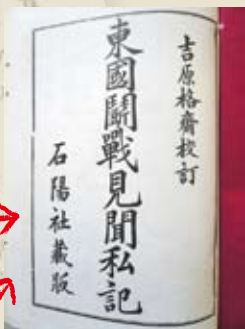 吉原格齋挍訂
東國鬭戰見聞私記
石陽社藏版